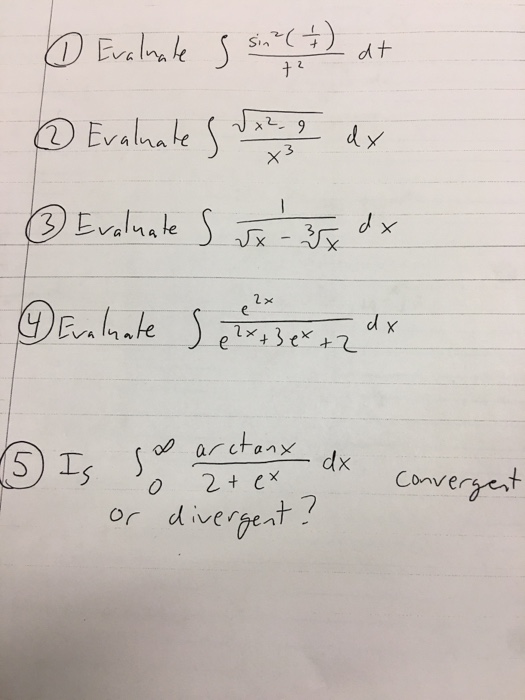 ① Evaluate ∫ sin²(1/t)/t² dt
② Evaluate ∫ √(x²-9)/x³ dx
③ Evaluate ∫ 1/(√x - ∛x) dx
④ Evaluate ∫ e^(2x)/(e^(2x)+3e^x+2) dx
⑤ Is ∫₀^∞ arctanx/(2+e^x) dx convergent
or divergent?